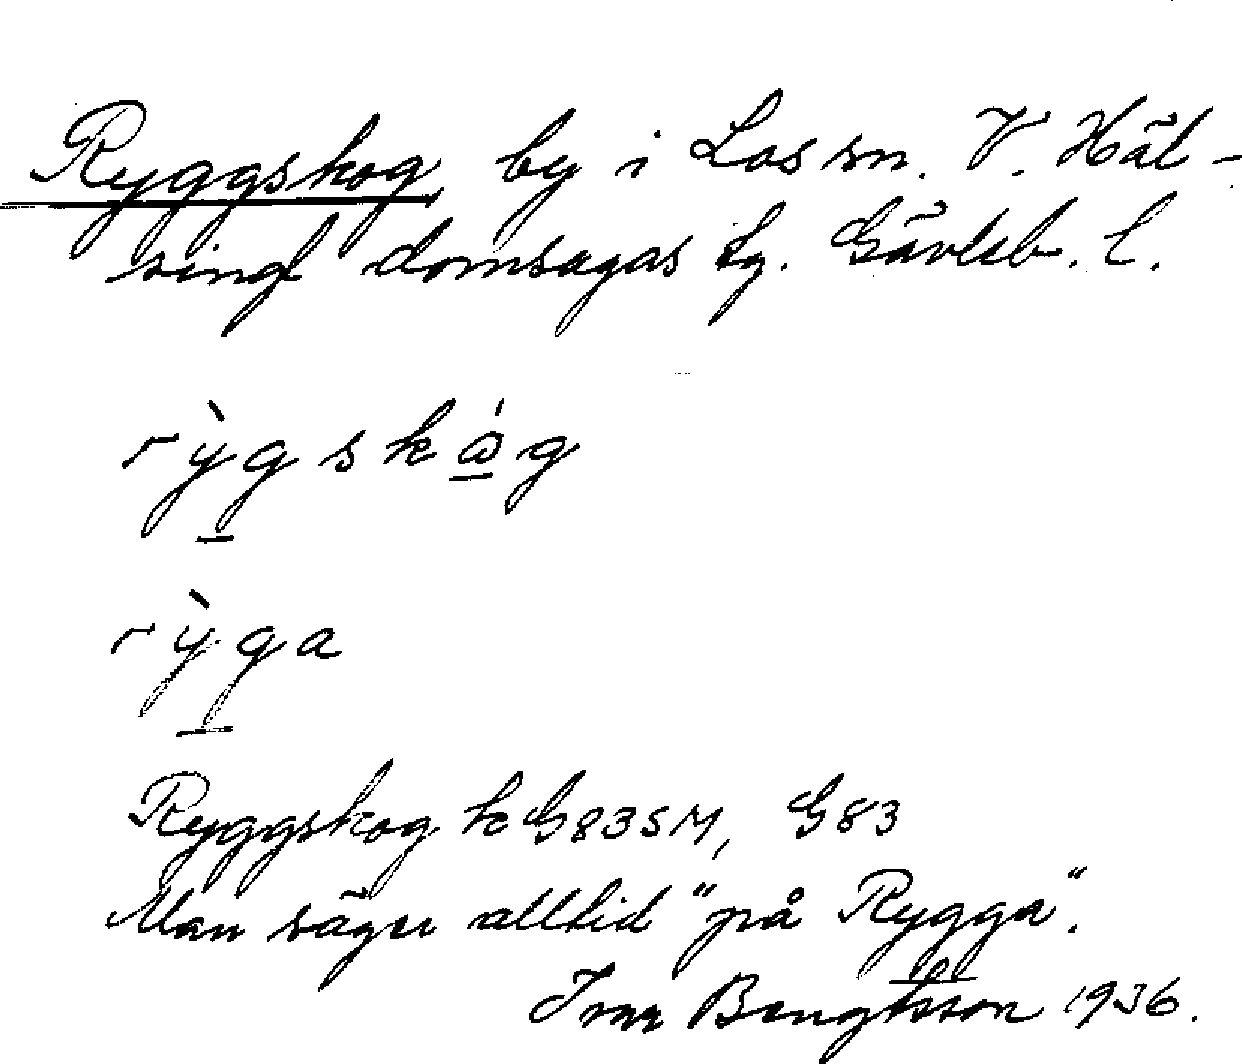 Ryggskog, by i Los sn. V. Häl-
singl domsagas tg. Gävleb. l.
rỳgskåg
rỳga
Ryggskog k G83SM, G83
Man säger alltid "på Rygga".
Ivar Bengtsson 1936.